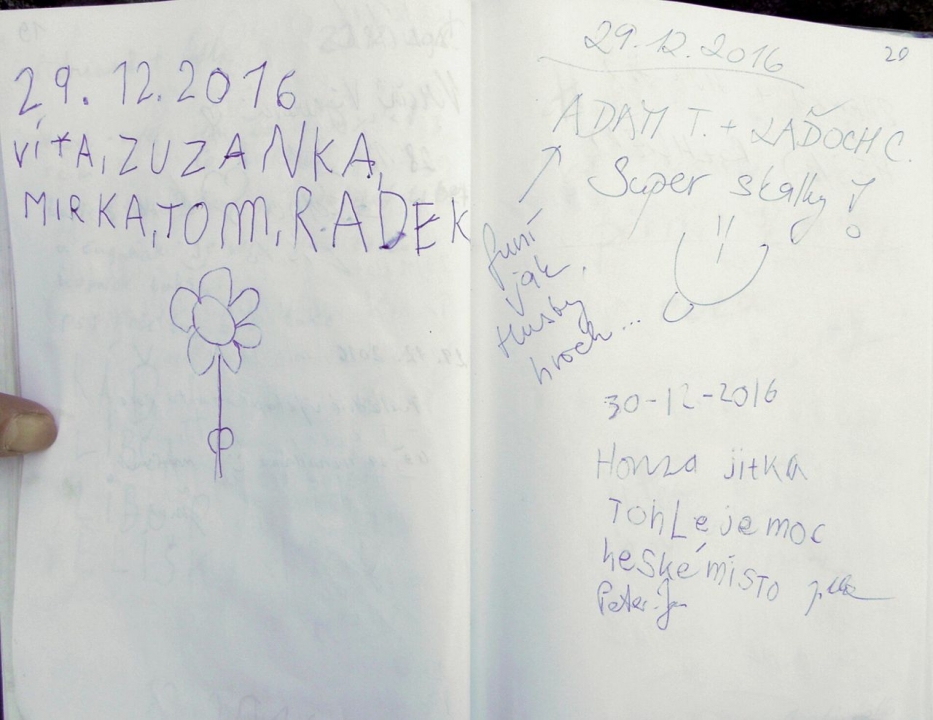 29.12.2016
víťA, ZUZANKA,
MIRKA, TOM, RADEK
29.12.2016
20
ADAM T. + LAĎOCH C.
Super skalky!
funí
jak
tlustý
hroch...
30-12-2016
Honza jitka
TohLe je moc
heské místo
Peter